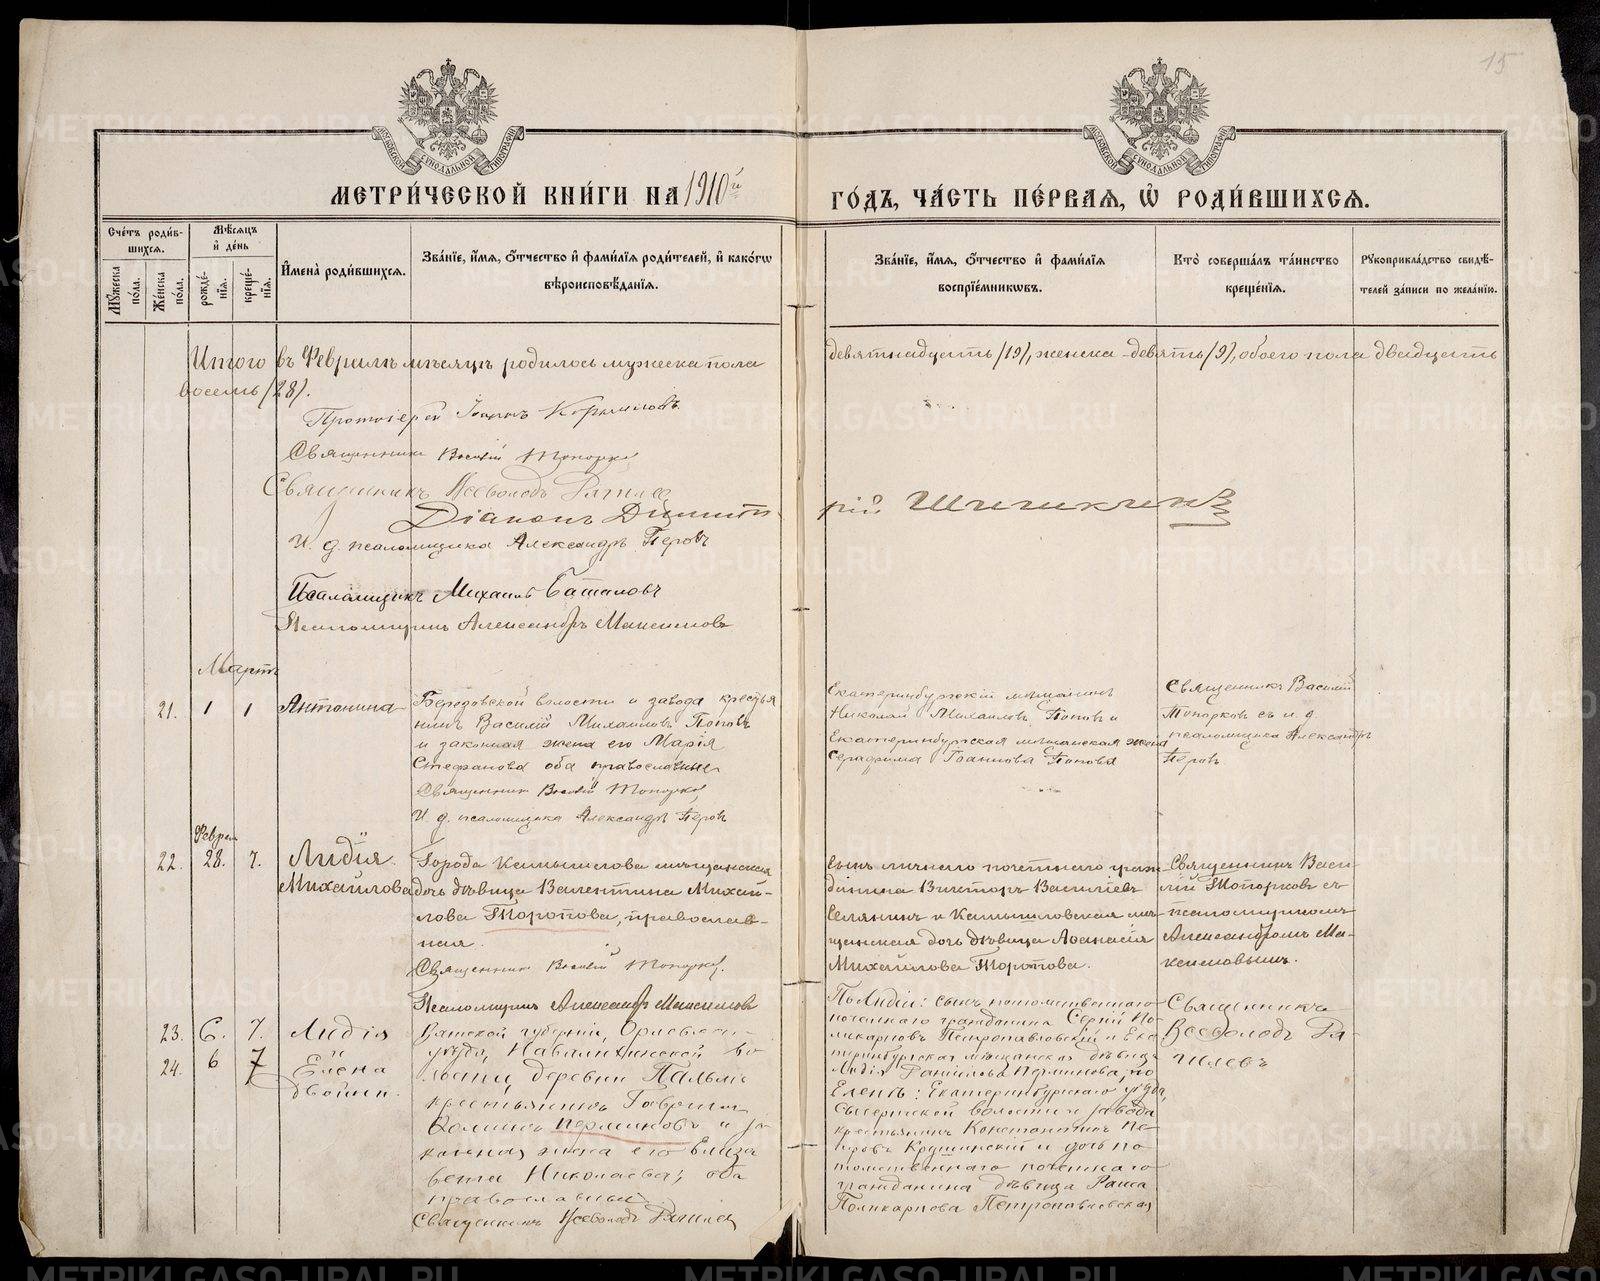 15
МОСКОВСКОЙ СѴНОДАЛЬНОЙ ТИПОГРАФІИ
МОСКОВСКОЙ СѴНОДАЛЬНОЙ ТИПОГРАФІИ
МЕТРИ́ЧЕСКОЙ КНИ́ГИ НА 1910й
ГО́ДЪ, ЧА́СТЬ ПЕ́РВАѦ, Ѽ РОДИ́ВШИХСѦ.
Сче́тъ роди́в-
шихсѧ.
Мꙋ́жеска по́ла.
Же́нска по́ла.
Мѣ́сѧцъ
и҆ де́нь
рожде́-
нїѧ.
креще́-
нїѧ.
И҆мена̀ роди́вшихсѧ.
Зва́нїе, и҆́мѧ, ѻ҆́тчество и҆ фами́лїѧ роди́телей, и҆ како́гѡ
вѣроисповѣ́данїѧ.
Зва́нїе, и҆́мѧ, ѻ҆́тчество и҆ фами́лїѧ
воспрїе́мникѡвъ.
Кто̀ соверша́лъ та́инство
креще́нїѧ.
Рꙋкоприкла́дство свидѣ́-
телей за́писи по жела́нїю.
Итого въ Февралѣ мѣсяцѣ родилось мужеска пола
девятнадцать /19/, женска - девять /9/, обоего пола двадцать
восемь /28/.
Протоіерей Іоаннъ
Священникъ Василій Топорковъ
Священникъ Всеволодъ
Діаконъ Димит-
рій Шишкинъ
И. д. псаломщика Александръ Перовъ
Псаломщикъ Михаилъ Баталовъ
Псаломщикъ Александръ Максимовъ
Мартъ
21. 1 1 Антонина
Березовской волости и завода крестья
нинъ Василій Михаиловъ Поповъ
и законная жена его Марія
Стефанова оба православные
Священникъ Василій Топорковъ
И. д. псаломщика Александръ Перовъ
Екатеринбургскій мѣщанинъ
Николай Михаиловъ Поповъ и
Екатеринбургская мѣщанская жена
Серафима Іоаннова Попова
Священникъ Василій
Топорковъ съ и. д.
псаломщика Александръ
Перовъ
Феврал
22. 28. 7. Лидія
Михайлова
Города Камышлова мѣщанская
дочь дѣвица Валентина Михай-
лова Торопова, православ-
ная.
Священникъ Василій Топорковъ.
Псаломщикъ Александръ Максимовъ
Сынъ личнаго почетнаго граж-
данина Викторъ Василіевъ
Селянинъ и Камышловская мѣ-
щанская дочь дѣвица Аѳанасія
Михайлова Торопова.
Священникъ Васи-
лій Топорковъ съ
псаломщикомъ
Александромъ Ма-
ксимовымъ.
23. 6. 7. Лидія
24. 6 7 и Елена
двойни.
Вятской губерніи, Орловск
уѣзда, во-
лости, деревни
крестьянинъ Гавріилъ
Перминовъ и за-
конная жена его Елиза
вета Николаева; оба
православные
Священникъ Всеволодъ
По Лидіи: сынъ потомственнаго
почетнаго гражданина Сергій По-
ликарповъ Петропавловскій и Ека
теринбургская мѣщанская дѣвица
Лидія Перминова; по
Еленѣ: Екатеринбургскаго уѣзда,
Сысертской волости и завода
крестьянинъ Константинъ Пе-
тровъ Крушинскій и дочь по-
томственнаго почетнаго
гражданина дѣвица Раиса
Поликарпова Петропавловская
Священникъ
Всеволодъ
METRIKI.GASO-URAL.RU